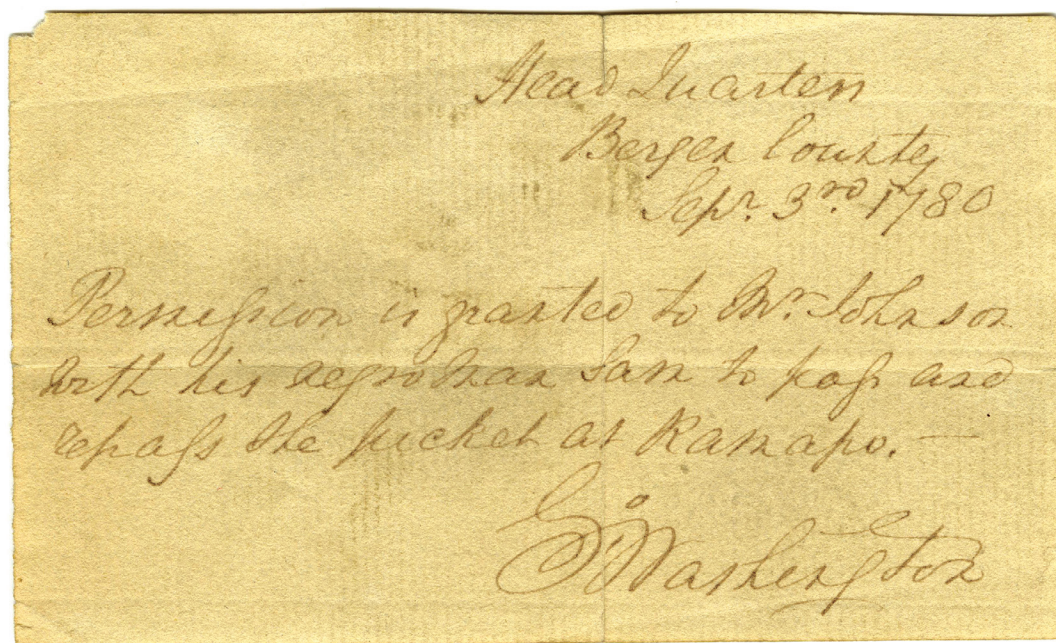 Head Quarters
Bergen County
Sepr. 3rd. 1780
Permission is granted to Mr. Johnson
with his negro man Sam to pass and
repass the picket at Ramapo. —
Go Washington